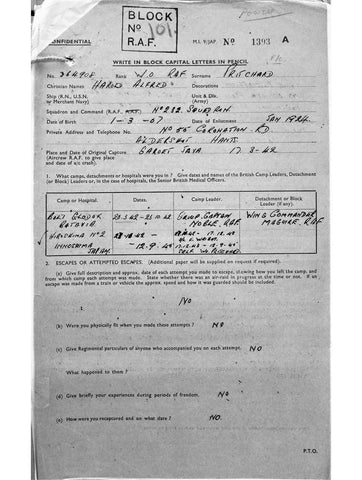 BLOCK
No 101
R.A.F.
CONFIDENTIAL
M.I. 9/JAP. No 1393 A
WRITE IN BLOCK CAPITAL LETTERS IN PENCIL.
No. 364908 Rank W.O RAF Surname PRITCHARD
Christian Names HAROLD ALFRED Decorations
Ship (R.N., U.S.N. or Merchant Navy) Unit & Div. (Army)
Squadron and Command (R.A.F. No 232 SQUADRON
Date of Birth 1-3-07 Date of Enlistment JAN 1924.
Private Address and Telephone Number No 55 CORONATION RD
ALDERSHOT HANTS
Place and Date of Original Capture GAROET JAVA 17.3.42
(Aircrew R.A.F. to give place and date of a/c crash).
1. What camps, detachments or hospitals were you in? Give dates and names of the British Camp Leaders, Detachment (or Block) Leaders or, in the case of hospitals, the Senior British Medical Officers.
Camp or Hospital. Dates. Camp Leader. Detachment or Block Leader (if any).
BATAVIA
NOBLE RAF
WING COMMANDER
MAGUIRE. RAF.
HIROSHIMA No 2
- 12.9.45
2. ESCAPES OR ATTEMPTED ESCAPES. (Additional paper will be supplied on request if required).
(a) Give full description and approx. date of each attempt you made to escape, showing how you left the camp, and from which camp each attempt was made. State whether there was an air-raid in progress at the time or not. If an escape was made from a train or vehicle the approx. speed and how it was guarded should be included.
NO
(b) Were you physically fit when you made these attempts? NO
(c) Give Regimental particulars of anyone who accompanied you on each attempt. NO
What happened to them?
(d) Give briefly your experiences during periods of freedom. NO
(e) How were you recaptured and on what date? NO.
P.T.O.